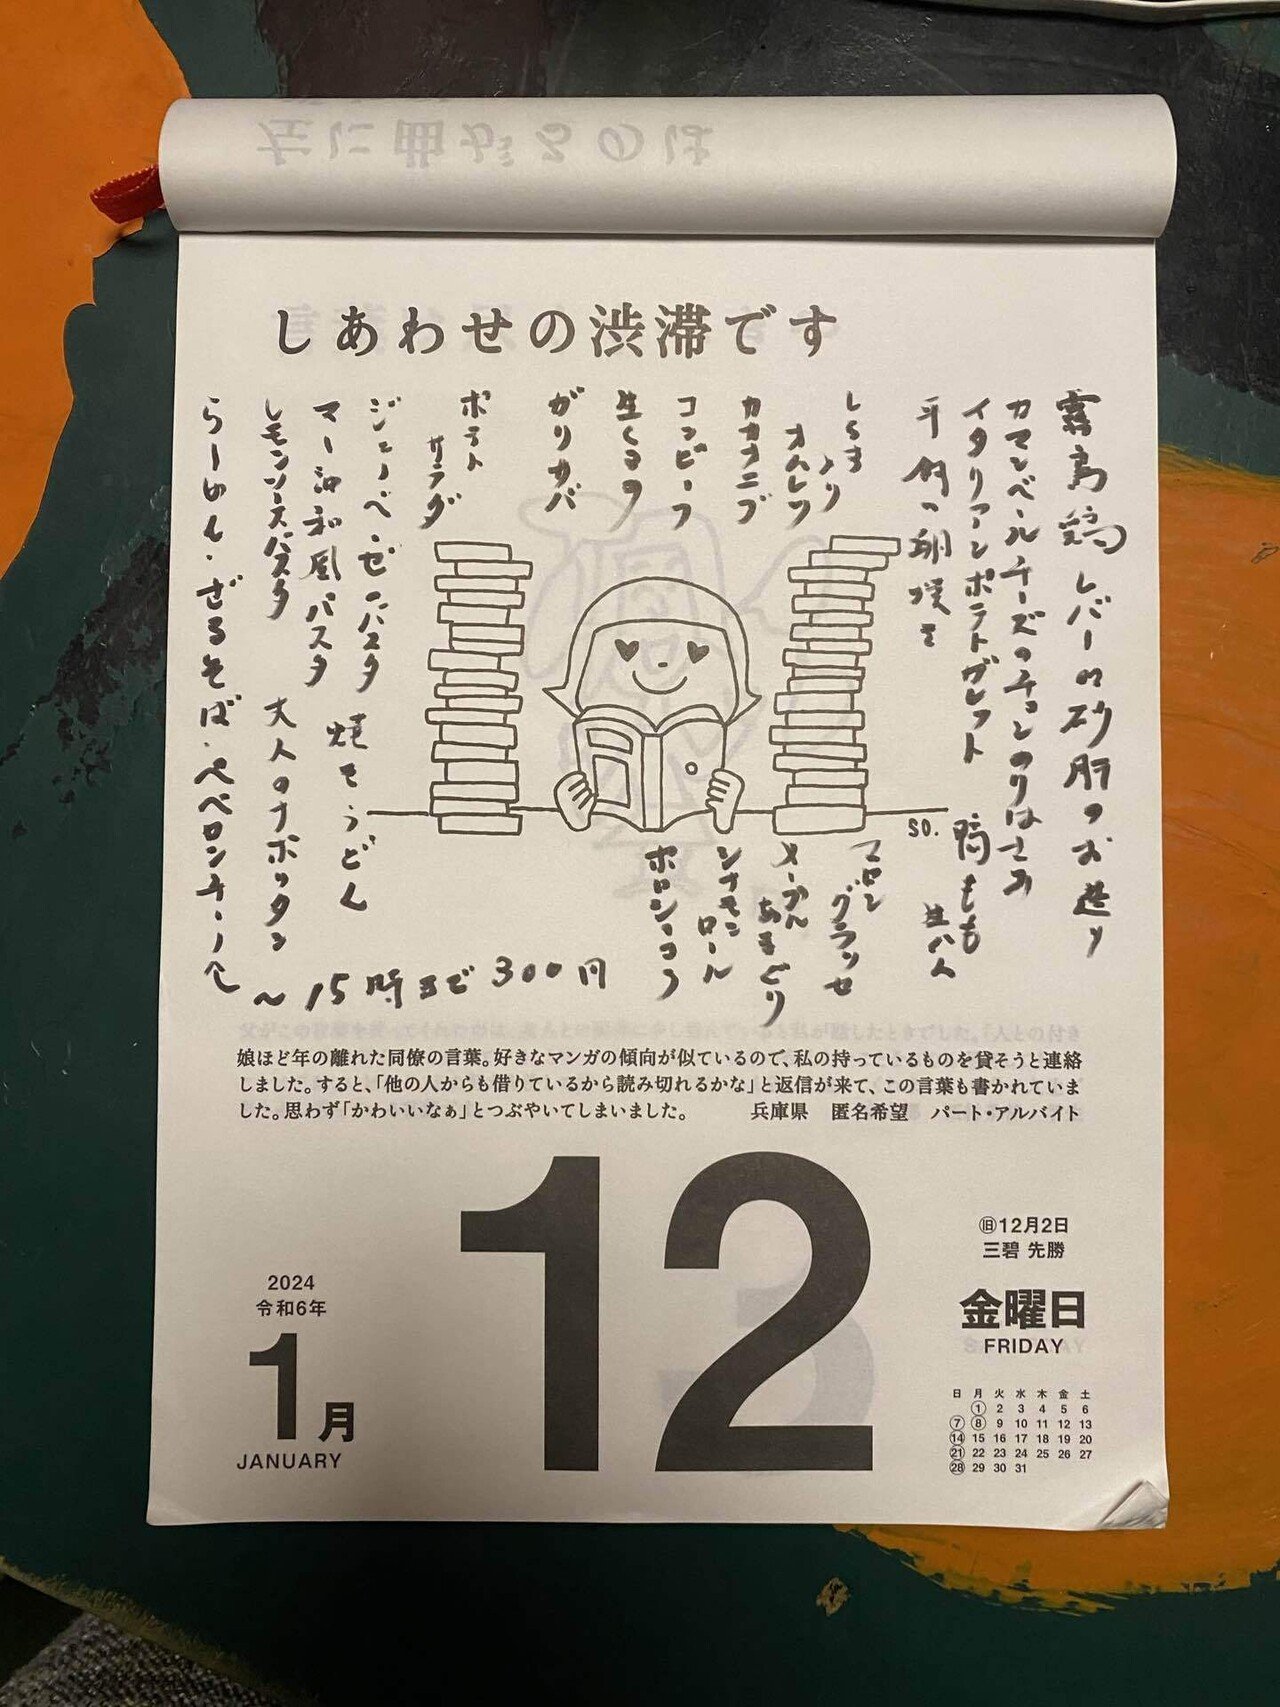 左に曲がるのは
しあわせの渋滞です
霧島鶏レバーの砂肝のお造り
カマンベールチーズのチョンのりはさみ
イタリアンポテトガレット
鴨もも
生ハム
しらす
のり
オムレツ
カカオニブ
コンビーフ
生くるみ
がりサバ
ポテト
サラダ
ジェノベーゼのパスタ
焼きうどん
マー油和風パスタ
レモンソースパスタ
大人のナポリタン
らーめん・ざるそば・ペペロンチーノ
マロン
グラッセ
メープル
シナモン
ロール
〜15時まで300円
SO.
娘ほど年の離れた同僚の言葉。好きなマンガの傾向が似ているので、私の持っているものを貸そうと連絡
しました。すると、「他の人からも借りているから読み切れるかな」と返信が来て、この言葉も書かれていま
した。思わず「かわいいなぁ」とつぶやいてしまいました。 兵庫県 匿名希望 パート・アルバイト
12
2024
令和6年
1月
JANUARY
㊐12月2日
三碧 先勝
金曜日
FRIDAY
日 月 火 水 木 金 土
1 2 3 4 5 6
7 8 9 10 11 12 13
14 15 16 17 18 19 20
21 22 23 24 25 26 27
28 29 30 31